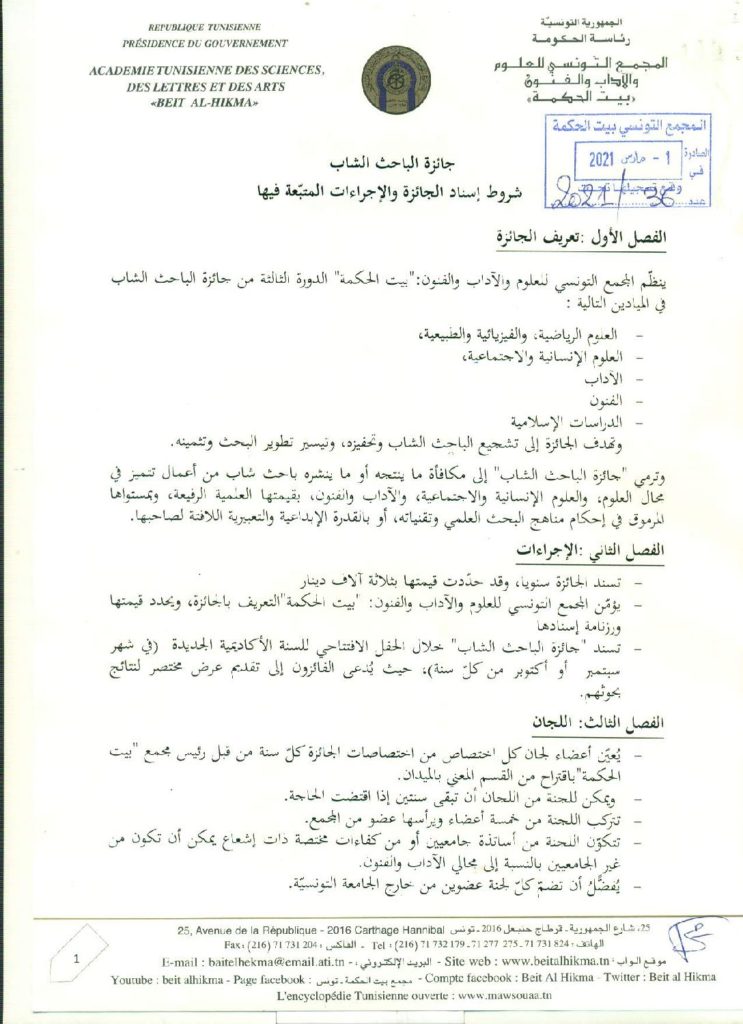 REPUBLIQUE TUNISIENNE
PRÉSIDENCE DU GOUVERNEMENT
ACADEMIE TUNISIENNE DES SCIENCES,
DES LETTRES ET DES ARTS
«BEIT AL-HIKMA»
الجمهورية التونسيّة
رئاسة الحكومة
المجمع التونسي للعلوم
والآداب والفنون
«بيت الحكمة»
المجمع التونسي بيت الحكمة
الصادرة في
1 - مارس 2021
وقع تسجيلها تحت
عدد 36 / 2021
جائزة الباحث الشاب
شروط إسناد الجائزة والإجراءات المتبّعة فيها
الفصل الأول :تعريف الجائزة
ينظّم المجمع التونسي للعلوم والآداب والفنون:"بيت الحكمة" الدورة الثالثة من جائزة الباحث الشاب
في الميادين التالية :
- العلوم الرياضية، والفيزيائية والطبيعية،
- العلوم الإنسانية والاجتماعية،
- الآداب
- الفنون
- الدراسات الإسلامية
وتهدف الجائزة إلى تشجيع الباحث الشاب وتحفيزه، وتيسير تطوير البحث وتثمينه.
وترمي "جائزة الباحث الشاب" إلى مكافأة ما ينتجه أو ما ينشره باحث شاب من أعمال تتميز في
مجال العلوم، والعلوم الإنسانية والاجتماعية، والآداب والفنون، بقيمتها العلمية الرفيعة، وبمستواها
المرموق في إحكام مناهج البحث العلمي وتقنياته، أو بالقدرة الإبداعية والتعبيرية اللافتة لصاحبها.
الفصل الثاني :الإجراءات
- تسند الجائزة سنويا، وقد حدّدت قيمتها بثلاثة آلاف دينار
- يؤمّن المجمع التونسي للعلوم والآداب والفنون: "بيت الحكمة"التعريف بالجائزة، ويحدد قيمتها
ورزنامة إسنادها
- تسند "جائزة الباحث الشاب" خلال الحفل الافتتاحي للسنة الأكاديمية الجديدة (في شهر
سبتمبر أو أكتوبر من كلّ سنة)، حيث يُدعى الفائزون إلى تقديم عرض مختصر لنتائج
بحوثهم.
الفصل الثالث: اللجان
- يُعيّن أعضاء لجان كل اختصاص من اختصاصات الجائزة كلّ سنة من قبل رئيس مجمع "بيت
الحكمة"باقتراح من القسم المعني بالميدان.
- ويمكن للجنة من اللجان أن تبقى سنتين إذا اقتضت الحاجة.
- تتركب اللجنة من خمسة أعضاء ويرأسها عضو من المجمع.
- تتكوّن اللجنة من أساتذة جامعيين أو من كفاءات مختصة ذات إشعاع يمكن أن تكون من
غير الجامعيين بالنسبة إلى مجالي الآداب والفنون.
- يُفضَّلُ أن تضمّ كلّ لجنة عضوين من خارج الجامعة التونسيّة.
25, Avenue de la République - 2016 Carthage Hannibal 25، شارع الجمهورية - قرطاج حنبعل 2016 - تونس
Fax : (216) 71 731 204 : الفاكس - Tel : (216) 71 732 179 - 71 277 275 - 71 731 824 : الهاتف
E-mail : baitelhekma@email.ati.tn - : البريد الإلكتروني - Site web : www.beitalhikma.tn : موقع الواب
Youtube : beit alhikma - Page facebook : مجمع بيت الحكمة - تونس - Compte facebook : Beit Al Hikma - Twitter : Beit al Hikma
L'encyclopédie Tunisienne ouverte : www.mawsouaa.tn
1